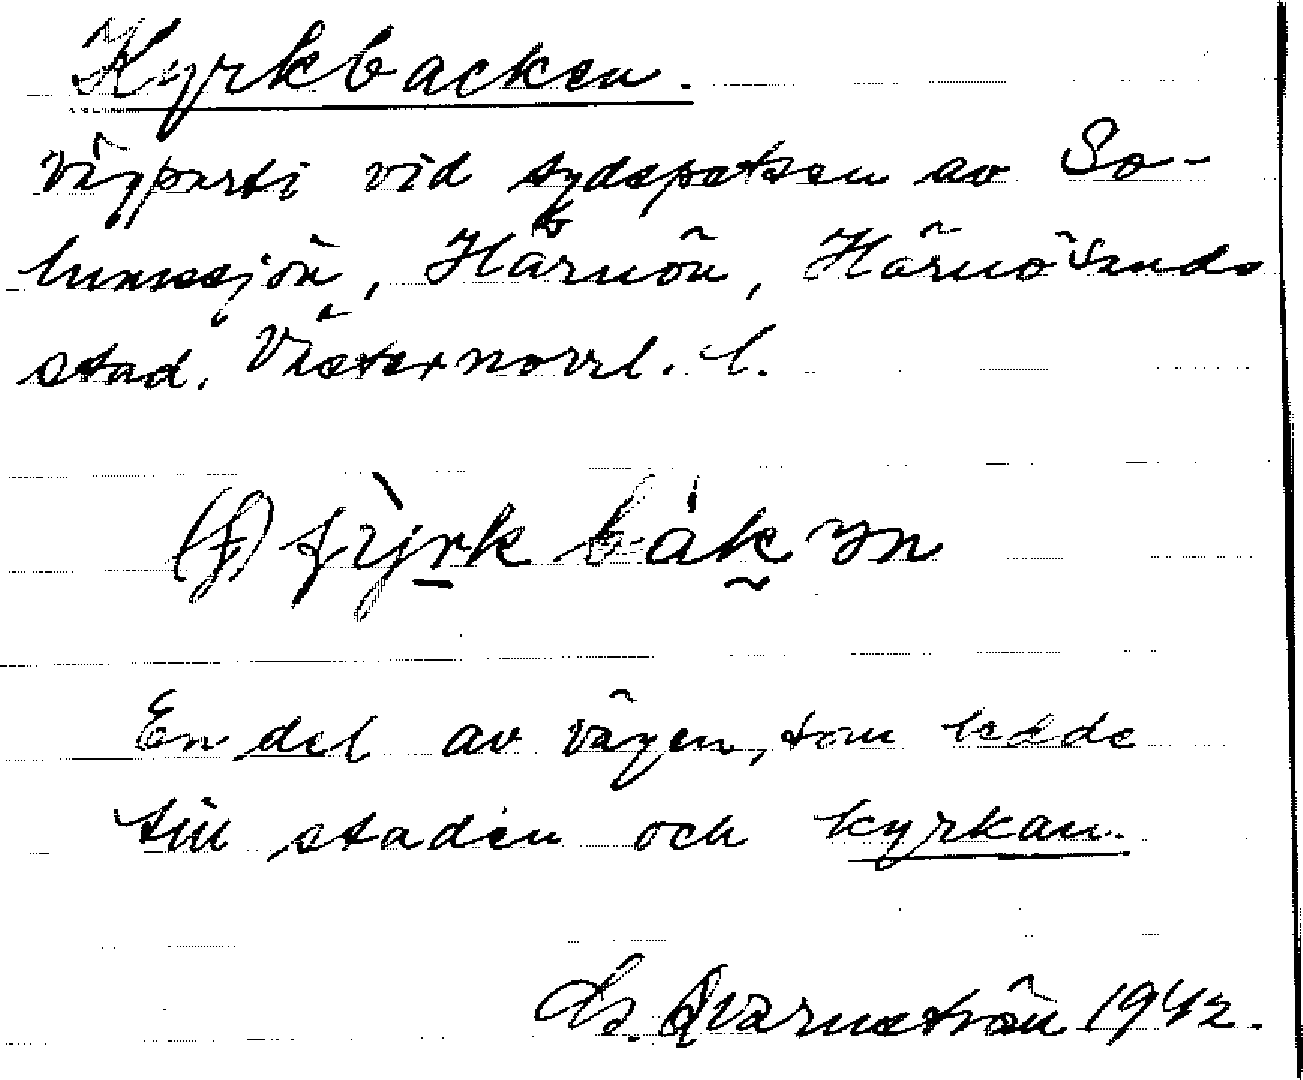 Kyrkbacken.
Vägparti vid sydspetsen av So-
lumsjön, Härnön, Härnösands
stad. Västernorrl. l.
En del av vägen, som ledde
till staden och kyrkan.
Qvarnström 1942.